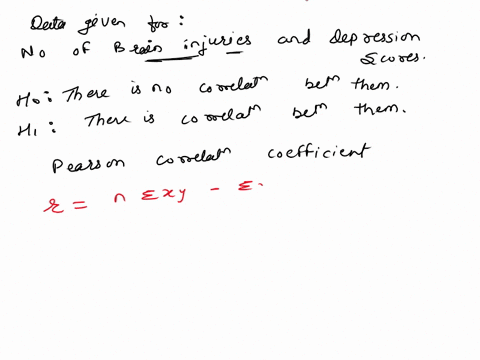 Data given for:
No of Brain injuries and depression
Scores.
H0: There is no correlatn betn them.
H1: There is correlatn betn them.
Pearson correlatn coefficient
r = n Σxy - Σ